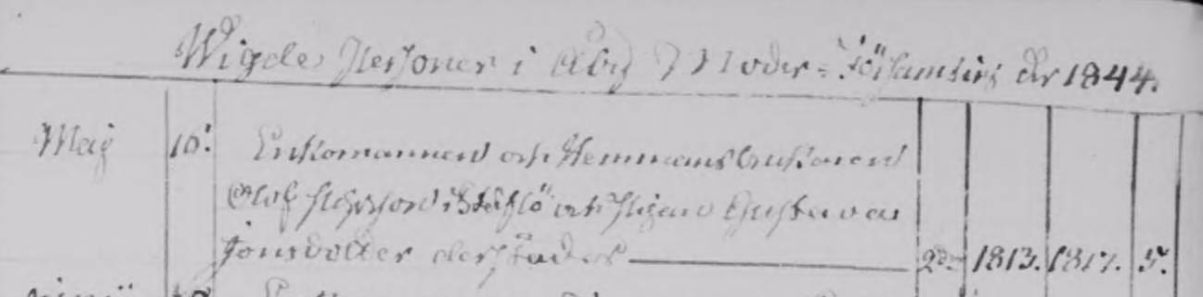 Wigde Personer i Åby Moder-Församling År 1844.
Maij 16. Enkomannen och Hemmansbrukaren
Olof Persson i Stäflö och Pigan Gustava
Jonsdotter derstädes 2dra 1813. 1817. 5.